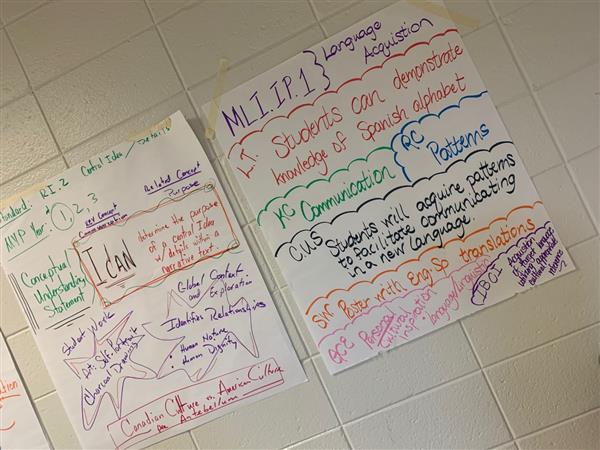 Standard: RI.2 Central Idea / Details
MYP Year: 1, 2, 3
Key Concept
Communication
Related Concept
Purpose
Conceptual
Understanding
Statement
I CAN
determine the purpose
of a central Idea
w/ details within a
narrative text.
Student Work
Art: Self-Portrait
Charcoal Drawings
Global Context
and Exploration
Identities Relationships
• Human Nature
• Human Dignity
Canadian Culture vs. American Culture
Antebellum
MLI.IP.1 } Language
Acquistion
L.T. Students can demonstrate
knowledge of Spanish alphabet
KC Communication
RC
Patterns
C.U.S Students will acquire patterns
to facilitate communicating
in a new language.
SW Poster with Eng-Sp translations
GC·E Personal
Cultural
Inspiration
• language/linguistic
IBCI
Acquisition